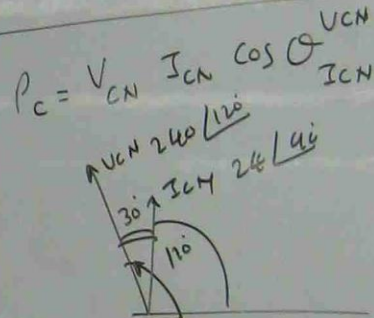 P_C = V_CN I_CN cos θ^VCN_ICN
VCN 240 ∠120°
ICN 24
30°